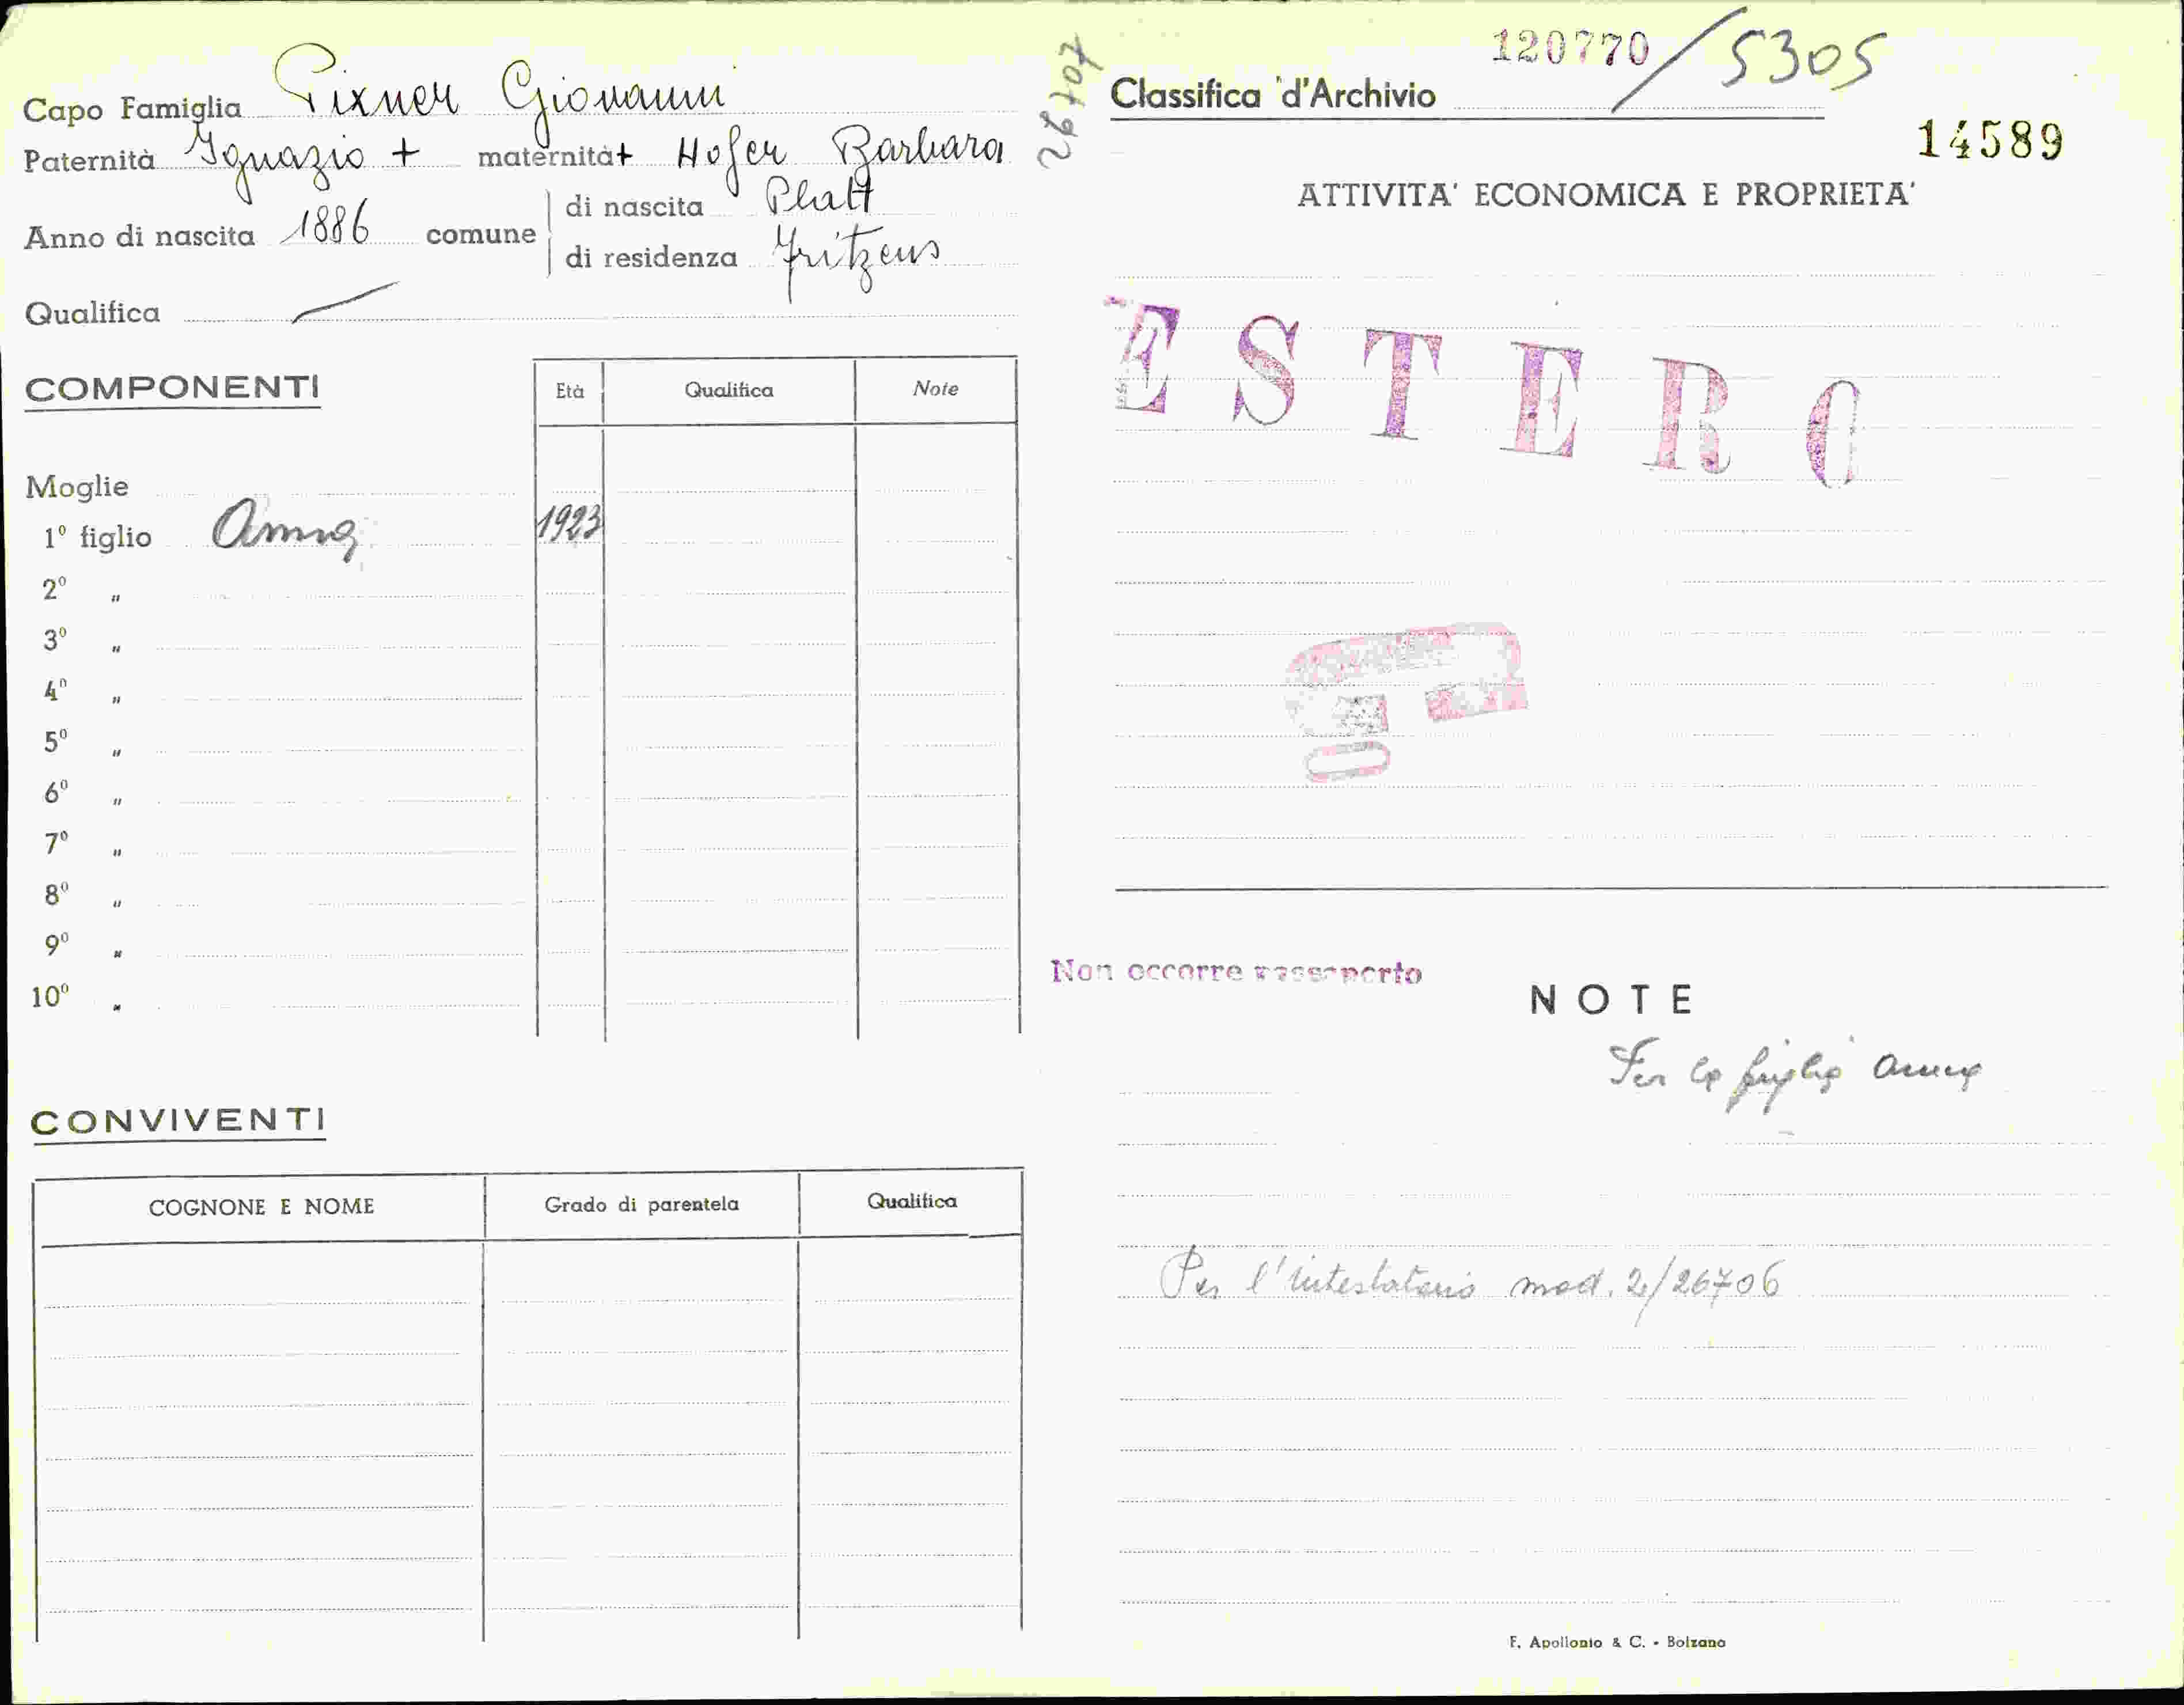 Capo Famiglia Pixner Giovanni
Paternità Ignazio + maternità + Hofer Barbara
Anno di nascita 1886 comune
di nascita Platt
di residenza Fritzens
Qualifica —
COMPONENTI
Età Qualifica Note
Moglie
1º figlio Anna 1923
2º "
3º "
4º "
5º "
6º "
7º "
8º "
9º "
10º "
CONVIVENTI
COGNONE E NOME Grado di parentela Qualifica
26707
120770/5305
Classifica d'Archivio
14589
ATTIVITA' ECONOMICA E PROPRIETA'
ESTERO
Non occorre passaporto
NOTE
Per la figlia Anna
Per l'intestatario mod. 2/26706
F. Apollonio & C. - Bolzano